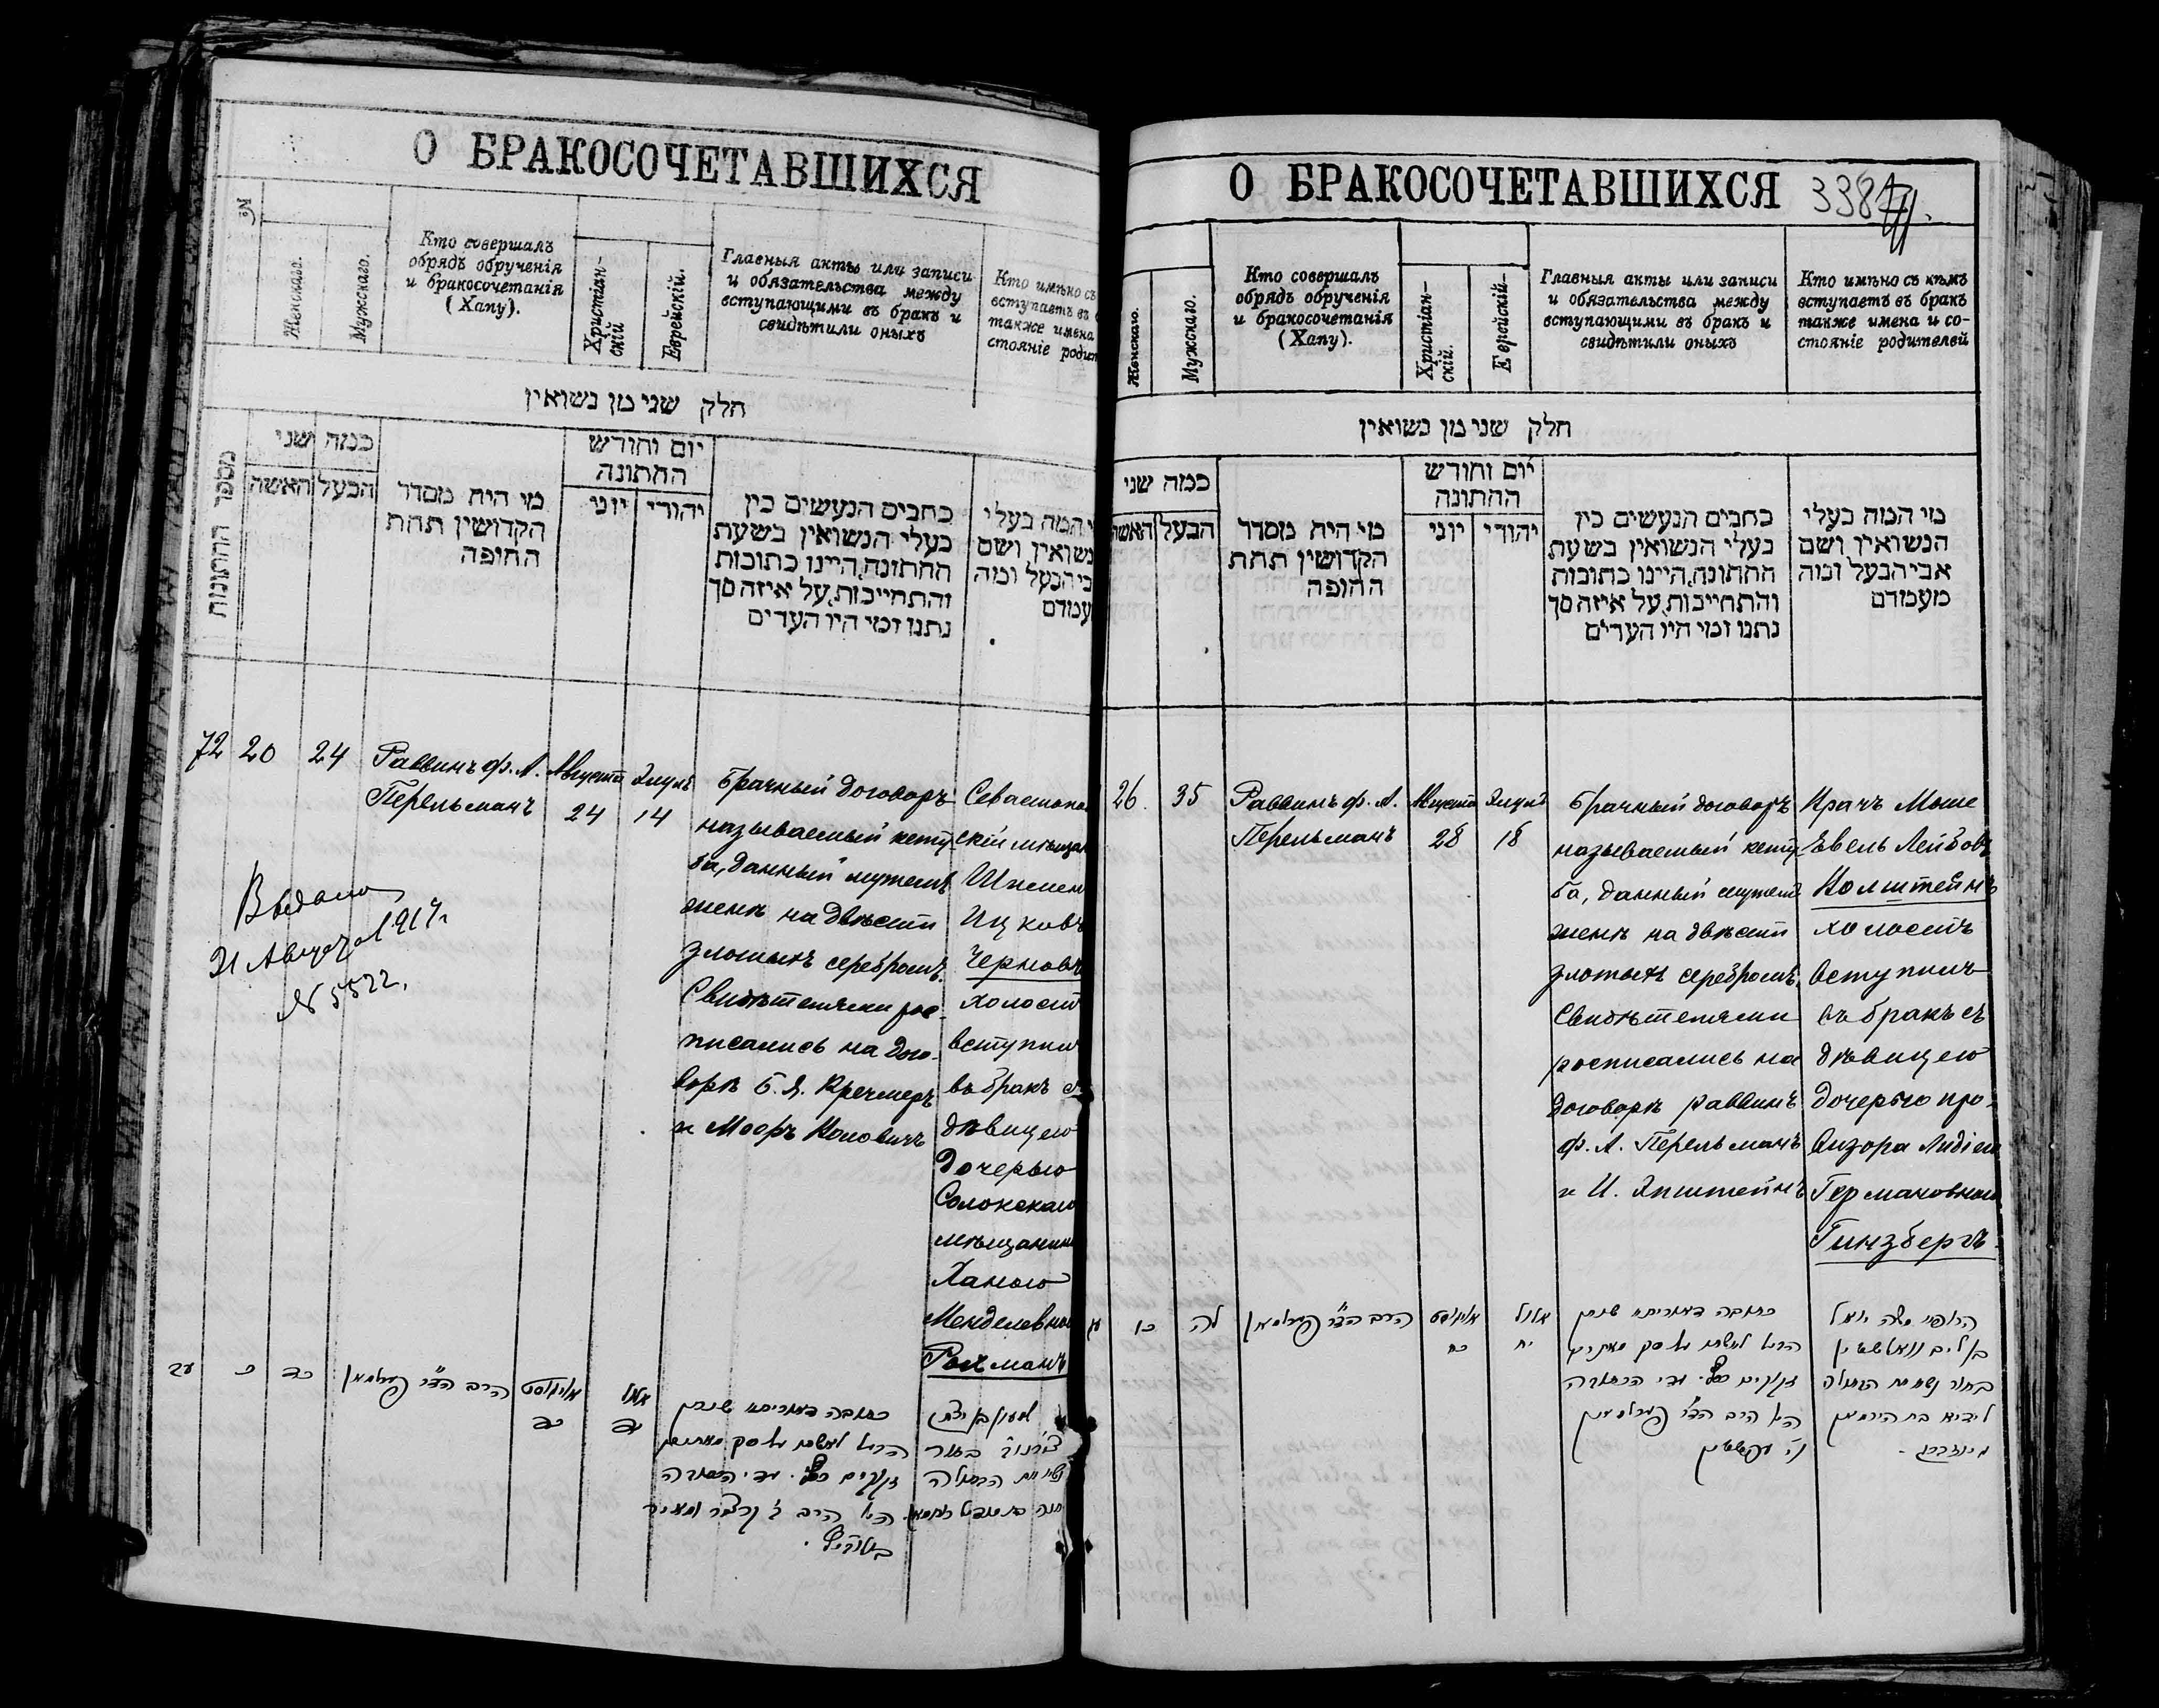 О БРАКОСОЧЕТАВШИХСЯ
№
Женскаго.
Мужскаго.
Кто совершалъ
обрядъ обрученія
и бракосочетанія
(Хапу).
Христіан-
скій
Еврейскій.
Главныя акты или записи
и обязательства между
вступающими въ бракъ и
свидѣтили оныхъ
Кто имѣно съ
вступаетъ въ
также имена
стояніе родит
חלק שני מן נשואין
מספר החתונות
כמה שני
האשה
הבעל
מי היה מסדר
הקדושין תחת
החופה
יום וחודש
החתונה
יוני
יהודי
כתבים הנעשים בין
בעלי הנשואין בשעת
החתונה, היינו כתובות
והתחייבות, על איזה סך
נתנו ומי היו העדים
י המה בעלי
נשואין ושם
בי הבעל ומה
עמדם
72
20
24
Раввинъ Ф. А.
Перельманъ
Августа
24
Элулъ
14
Брачный договоръ
называемый кету
ба, данный мужемъ
женѣ на двѣсти
злотыхъ серебромъ.
Свидѣтелями рос-
писались на дого-
ворѣ Б. Я. Кречмеръ
и Мееръ
Севастопо
скій мѣщан
Шимен
Ицковъ
Черновъ
холост
вступил
въ бракъ с
дѣвицею
дочерью
Солокскаго
мѣщанина
Ханою
Менделевною
Рахманъ
Выдано
21 Августа 1917 г
№ 5522.
עב
כ
כד
הרב הד״ר פערלמאן
אויגוסט
כד
אלול
יד
כתובה דאורייתא שנתן
הבעל לאשתו על סך מאתים
זקוקים כסף. עדי הכתובה
שמעון בן יצחק
בחור
נשא את הבתולה
О БРАКОСОЧЕТАВШИХСЯ
338
Женскаго.
Мужскаго.
Кто совершалъ
обрядъ обрученія
и бракосочетанія
(Хапу).
Христіан-
скій.
Еврейскій-
Главныя акты или записи
и обязательства между
вступающими въ бракъ и
свидѣтили оныхъ
Кто имѣно съ кѣмъ
вступаетъ въ бракъ
также имена и со-
стояніе родителей
חלק שני מן נשואין
כמה שני
האשה
הבעל
מי היה מסדר
הקדושין תחת
החופה
יום וחודש
החתונה
יוני
יהודי
כתבים הנעשים בין
בעלי הנשואין בשעת
החתונה, היינו כתובות
והתחייבות, על איזה סך
נתנו ומי היו העדים
מי המה בעלי
הנשואין ושם
אבי הבעל ומה
מעמדם
26.
35
Раввинъ Ф. А.
Перельманъ
Августа
28
Элулъ
18
Брачный договоръ
называемый кету
ба, данный мужемъ
женѣ на двѣсти
злотыхъ серебромъ.
Свидѣтелями
росписались на
договорѣ раввинъ
Ф. А. Перельманъ
и И. Эпштейнъ
Врачъ Моше
Евель Лейбовъ
Колштейнъ
холостъ
вступилъ
въ бракъ съ
дѣвицею
дочерью про-
визора Лидіею
Германовною
Гинзбергъ.
כו
לה
הרב הד״ר פערלמאן
אויגוסט
כח
אלול
יח
כתובה דאורייתא שנתן
הבעל לאשתו על סך מאתים
זקוקים כסף. עדי הכתובה
הרב הד״ר פערלמאן
הרופא משה
בחור נשא את הבתולה
לידיא בת הירמאן
גינזברג.